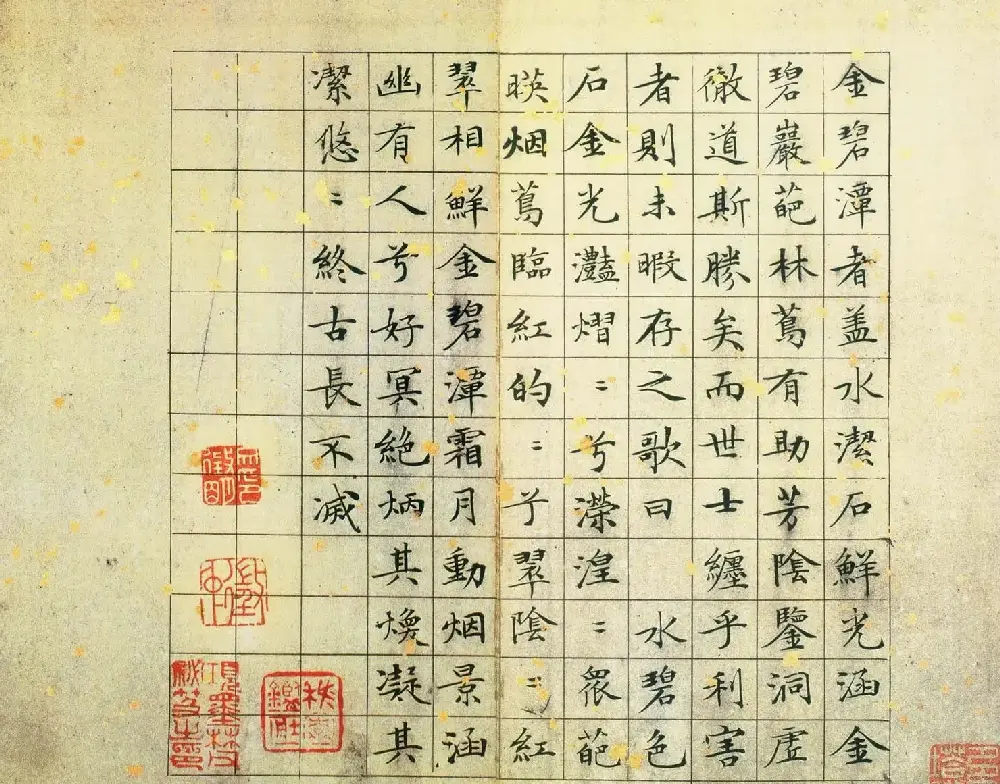 金碧潭者盖水潔石鮮光涵金
碧巖葩林蔦有助芳陰鑒洞虛
徹道斯勝矣而世士纏乎利害
者則未暇存之歌曰 水碧色
石金光灩熠〻兮濴湟〻衆葩
暎烟蔦臨紅的〻兮翠陰〻紅
翠相鮮金碧潭霜月動烟景涵
幽有人兮好冥絶炳其煥凝其
潔悠〻終古長不滅
項墨林父秘笈之印